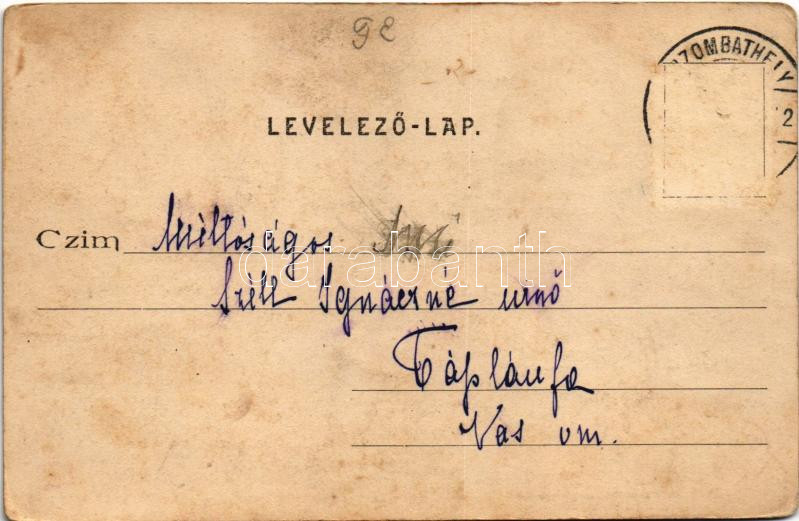 92
SZOMBATHELY
2
LEVELEZŐ-LAP.
Czim Méltóságos
Széll Ignáczné urnő
Táplánfa
Vas vm.
darabanth